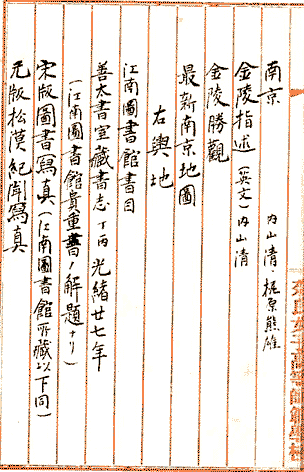 南京　内山清・梶原熊雄
金陵指述（英文）内山清
金陵勝觀
最新南京地圖
右輿地
江南圖書館書目
善本書室藏書志　丁丙　光緒廿七年
（江南圖書館貴重書ノ解題ナリ）
宋版圖書寫真（江南圖書館所藏以下同）
元版松漠紀聞寫真